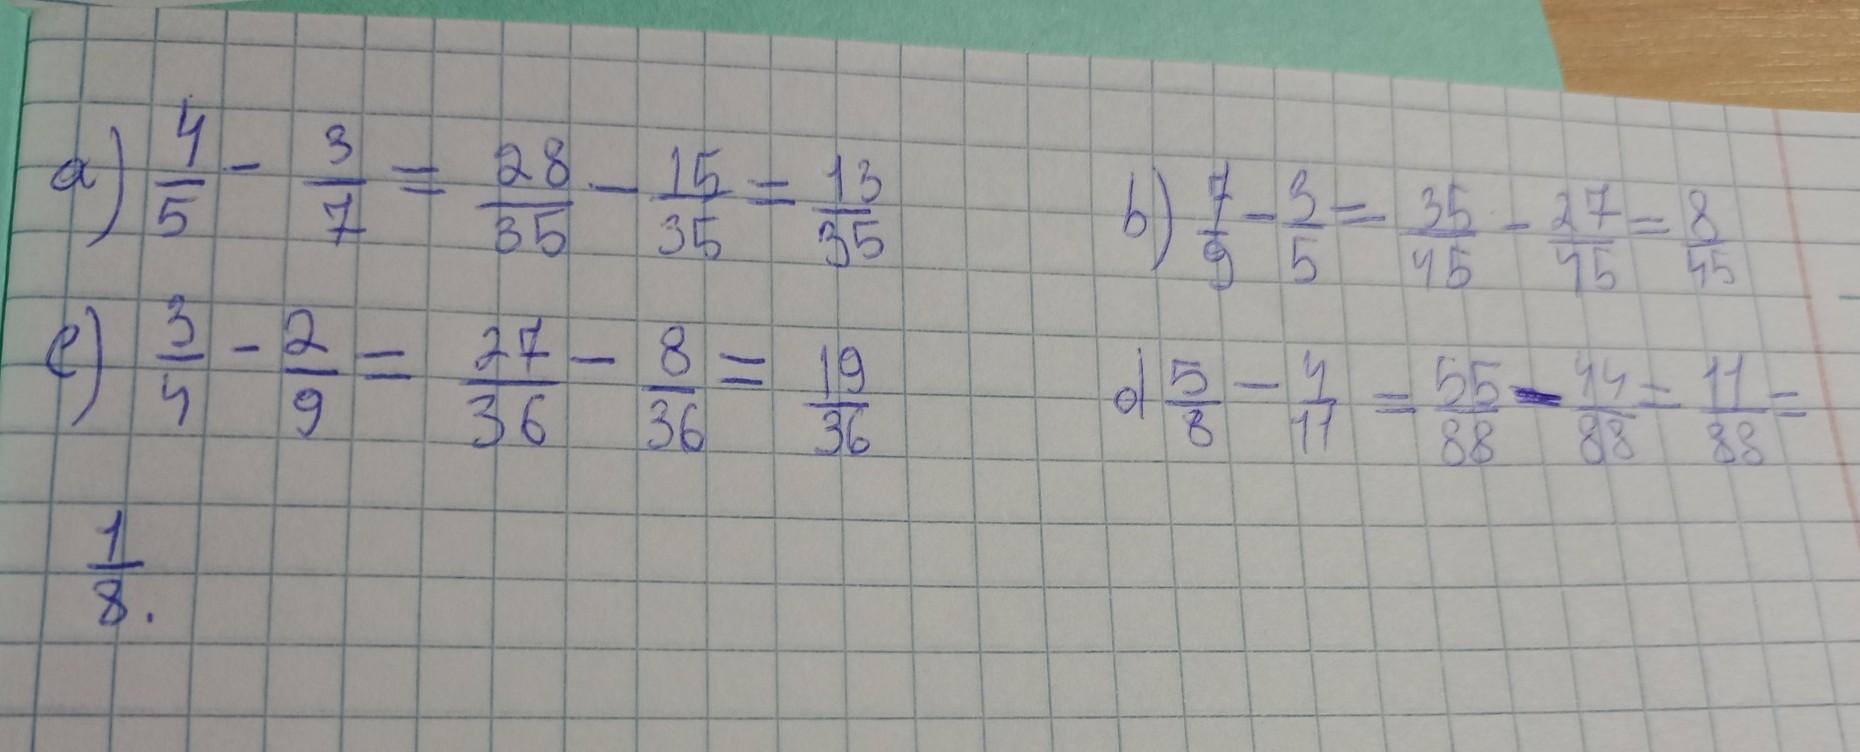 a) 4/5 - 3/7 = 28/35 - 15/35 = 13/35
b) 7/9 - 3/5 = 35/45 - 27/45 = 8/45
c) 3/4 - 2/9 = 27/36 - 8/36 = 19/36
d) 5/8 - 4/11 = 55/88 - 44/88 = 11/88 =
1/8.